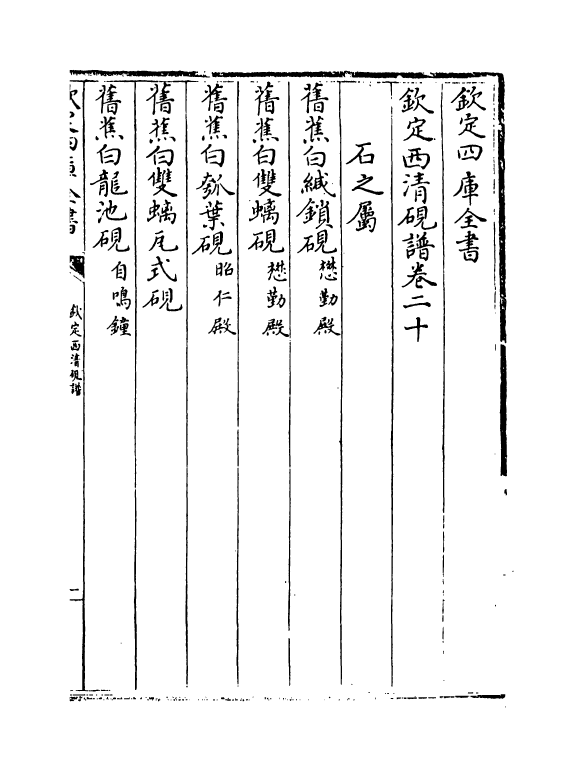 欽定四庫全書
欽定西清硯譜卷二十
石之屬
舊蕉白緘鎖硯懋勤殿
舊蕉白雙螭硯懋勤殿
舊蕉白瓠葉硯昭仁殿
舊蕉白雙螭瓦式硯
舊蕉白龍池硯自鳴鐘
欽定四庫全書
欽定西清硯譜